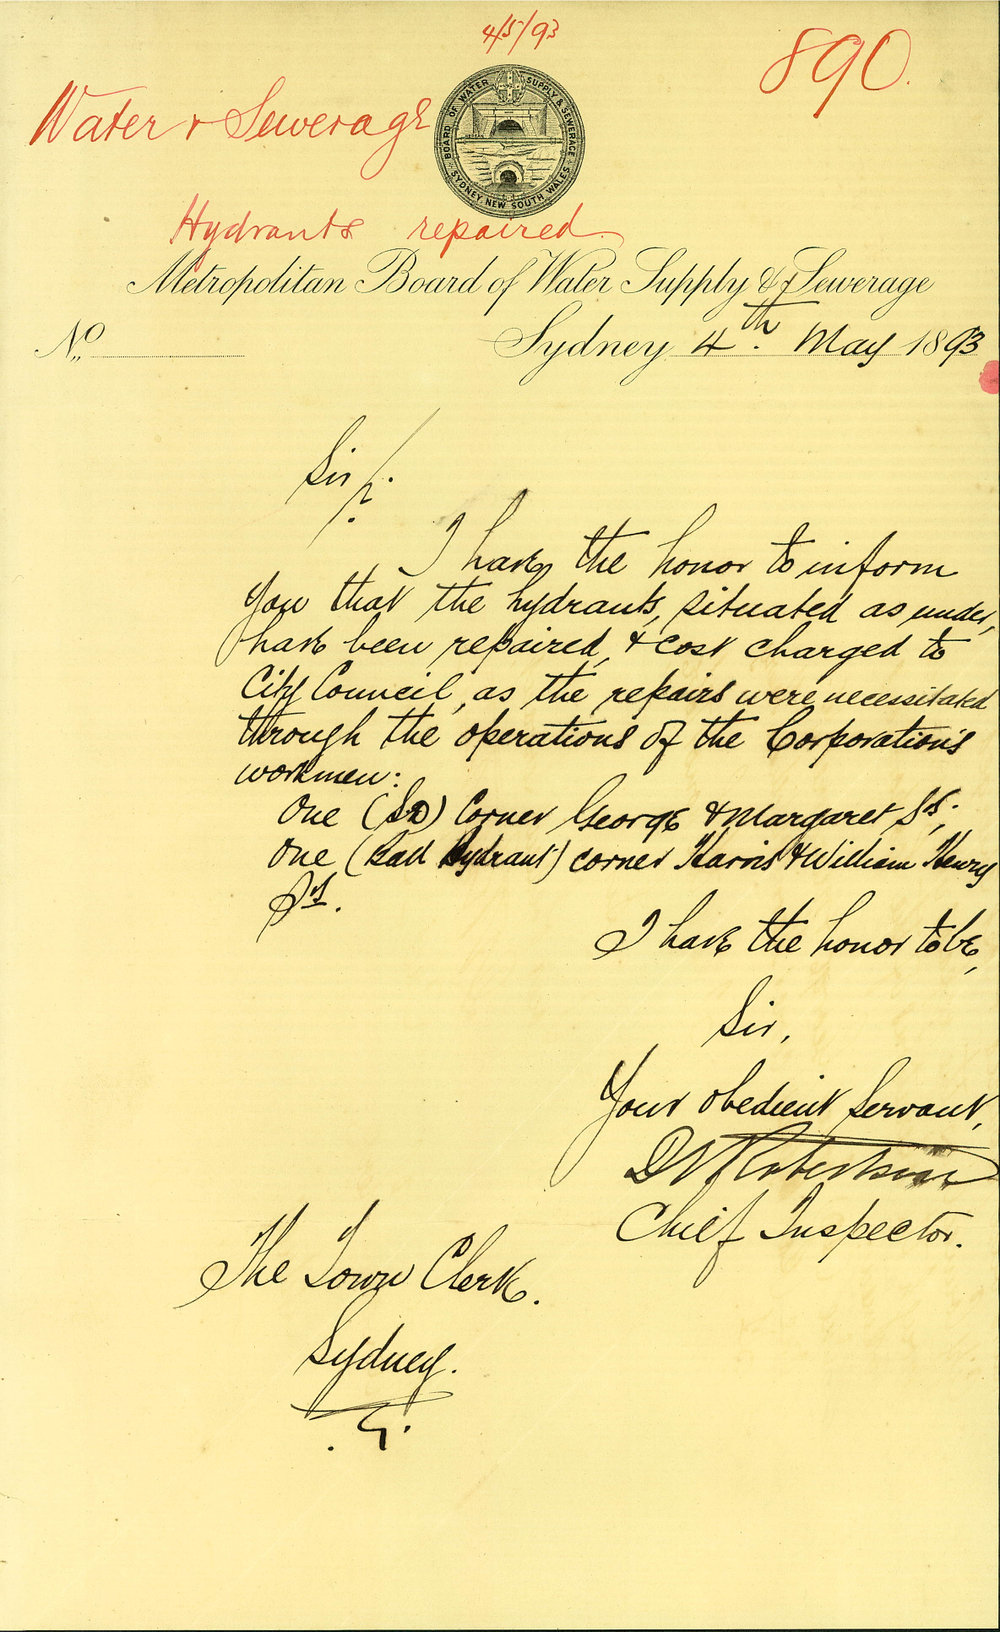 4/5/93
890.
Water & Sewerage
BOARD OF WATER SUPPLY & SEWERAGE
SYDNEY NEW SOUTH WALES
Hydrants repaired
Metropolitan Board of Water Supply & Sewerage
No
Sydney 4th. May 1893
Sir,
I have the honor to inform
you that the hydrants, situated as under,
have been repaired, & cost charged to
City Council, as the repairs were necessitated
through the operations of the Corporation's
workmen:
One corner George & Margaret Sts;
One (Ball Hydrant) corner Harris & William Henry
Sts.
I have the honor to be,
Sir,
Your obedient servant,
Robertson
Chief Inspector.
The Town Clerk.
Sydney.